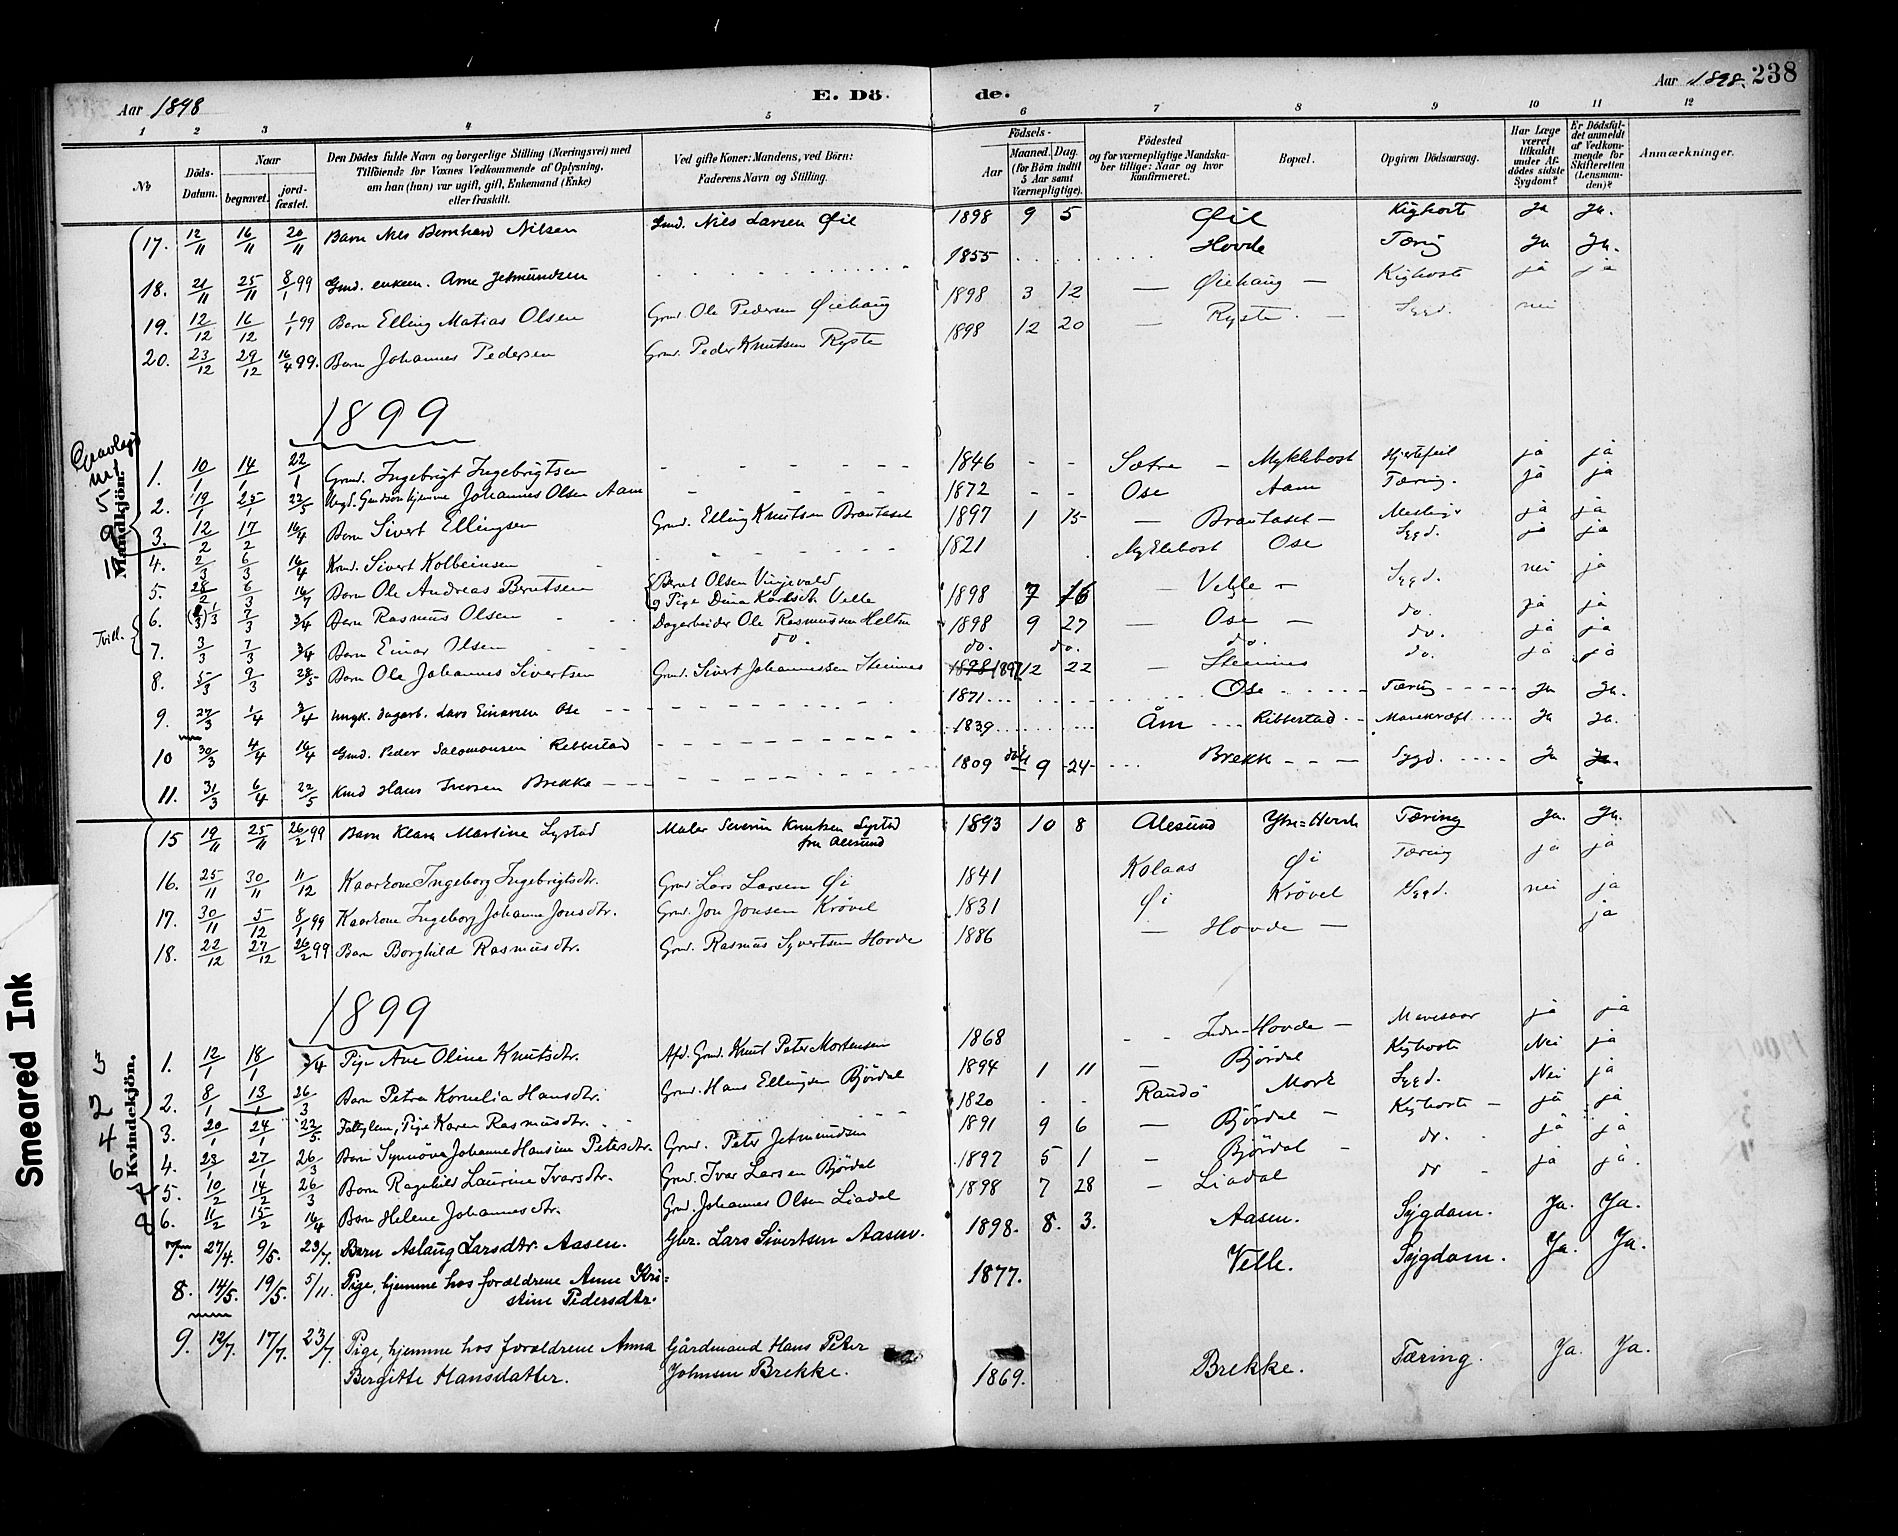 Aar 1898
E. Dö- de.
Aar 1898. 238
1 2 3 4 5 6 7 8 9 10 11 12
No
Döds-Datum.
Naar
begravet.
jord-fæstet.
Den Dödes fulde Navn og borgerlige Stilling (Næringsvei) med
Tilföiende for Voxnes Vedkommende af Oplysning,
om han (hun) var ugift, gift, Enkemand (Enke)
eller fraskilt.
Ved gifte Koner: Mandens, ved Börn:
Faderens Navn og Stilling.
Födsels-
Aar
Maaned. Dag.
(for Börn indtil
5 Aar samt
Værnepligtige).
Födested
og for værnepligtige Mandska-
ber tillige: Naar og hvor
konfirmeret.
Bopæl.
Opgiven Dödsaarsag.
Har Læge
været
tilkaldt
under Af-
dödes sidste
Sygdom?
Er Dödsfal-
det anmeldt
af Vedkom-
mende for
Skifteretten
(Lensman-
den)?
Anmærkninger.
17. 12/11 16/11 20/11 Barn Nils Bernhard Nilsen Gmd. Nils Larsen Øie 1898 9 5 Øie Kighoste Ja Ja.
18. 21/11 25/11 8/1 99 Gmd. enkem. Arne Jetmundsen 1855 Hovde Tæring Ja Ja.
19. 12/12 16/12 1/1 99 Barn Elling Matias Olsen Grmd. Ole Pedersen Øiehaug 1898 3 12 — Øiehaug — Kighoste ja ja
20. 23/12 29/12 16/4 99. Barn Johannes Pedersen Grmd. Peder Knutsen Ryste 1898 12 20 — Ryste. — Sygd. nei
1899
Mandkjön.
1. 10/1 14/1 22/1 Grmd. Ingebrigt Ingebrigtsen 1846 - - Sætre — Myklebost Hjertefeil ja ja
2. 19/1 25/1 22/5 Ungk. Gmdsøn hjemme Johannes Olsen Aam 1872 - - Ose Aam Tæring. ja ja
3. 12/2 17/2 16/4 Barn Sivert Ellingsen Grmd. Elling Knutsen Brautaset 1897 1 15 — Brautaset — ja ja
4. 2/3 6/3 16/4 Sivert Kolbeinsen 1821 Myklebost Ose Sygd. ja ja
5. 28/2 6/3 16/7 Barn Ole Andreas Berntsen Bernt Olsen Vinjevold
og Pige Dina Karlsdtr. Velle 1898 7 16 — Velle — Sygd. nei ja
Tvill.
6. 1/3 7/3 3/4 Barn Rasmus Olsen Dagarbeider Ole Rasmussen 1898 9 27 — Ose — do. ja ja
7. 3/3 7/3 3/4 Barn Einar Olsen do. do. do. do. do. ja ja
8. 5/3 9/3 28/5 Barn Ole Johannes Sivertsen Grmd. Sivert Johannessen Steinnes 1898 1897 12 22 — Steinnes do. ja ja
9. 27/3 1/4 3/4 Ungk. dagarb. Lars Einarsen Ose 1871 Ose Tæring Ja Ja.
10 30/3 4/4 16/4 Gmd. Peder Salomonsen Rebbestad 1839 Åm Rebbestad Mavekræft Ja Ja.
11. 31/3 6/4 22/5 Hans Iversen Brekke 1809 9 24 Brekk Sygd. Ja Ja.
15 19/11 25/11 26/2 99 Barn Klara Martine Lystad Maler Severin Knutsen Lystad
fra Alesund 1893 10 8 Alesund Ytre-Hovde Tæring Ja. Ja.
16. 25/11 30/11 11/12 Kaarkone Ingeborg Ingebrigtsdtr. Grmd. Lars Larsen Øi 1841 Kolaas Øi Tæring ja ja
17. 30/11 5/12 8/1 99 Kaarkone Ingeborg Johanne Jonsdtr. Grmd. Jon Jonsen Krövel 1831 Øi Krövel Sygd. nei ja
18. 22/12 27/12 26/2 99 Barn Borghild Rasmusdtr. Grmd. Rasmus Syvertsen Hovde 1886 — Hovde — ja
1899
Kvindekjön.
1. 12/1 18/1 3/4 Pige Ane Oline Knutsdtr. Afd. Grmd. Knut Peter Mortensen 1868 Indre-Hovde — Mavesaar ja ja
2. 8/1 13/1 26/3 Barn Petra Kornelia Hansdtr. Grmd. Hans Ellingsen Björdal 1894 1 11 — Björdal Kighoste Nei ja
3. 20/1 24/1 22/5 Fattiglem, Pige Karen Rasmusdtr. 1820 - - Randö Mork Sygd. Nei ja
4. 23/1 27/1 26/3 Barn Synnöva Johanne Hansine Petersdtr. Grmd. Peter Jetmundsen 1891 9 6 — Björdal — Kighoste — ja ja
5. 10/2 14/2 26/3 Barn Ragnhild Laurine Ivarsdtr. Grmd. Ivar Larsen Björdal 1897 5 1 — Björdal — do. ja ja
6. 11/2 15/2 16/4 Barn Helene Johannesdtr. Grmd. Johannes Olsen Liadal 1898 7 28 — Liadal do ja ja.
7. 27/4. 9/5. 23/7. Barn Aslaug Larsdtr. Aasen. Gbr. Lars Sivertsen Aasen. 1898. 8. 3. Aasen. Sygdom. Ja. Ja.
8. 14/5. 19/5. 5/11. Pige, hjemme hos forældrene Anne Kri=
stine Pedersdtr. 1877. Velle. Sygdom. Ja. Ja.
9. 12/7. 17/7. 23/7. Pige, hjemme hos forældrene Anna
Bergitte Hansdatter. Gårdmand Hans Peter
Johnsen Brekke. 1869. Brekke. Tæring. Ja. Ja.
Smeared Ink